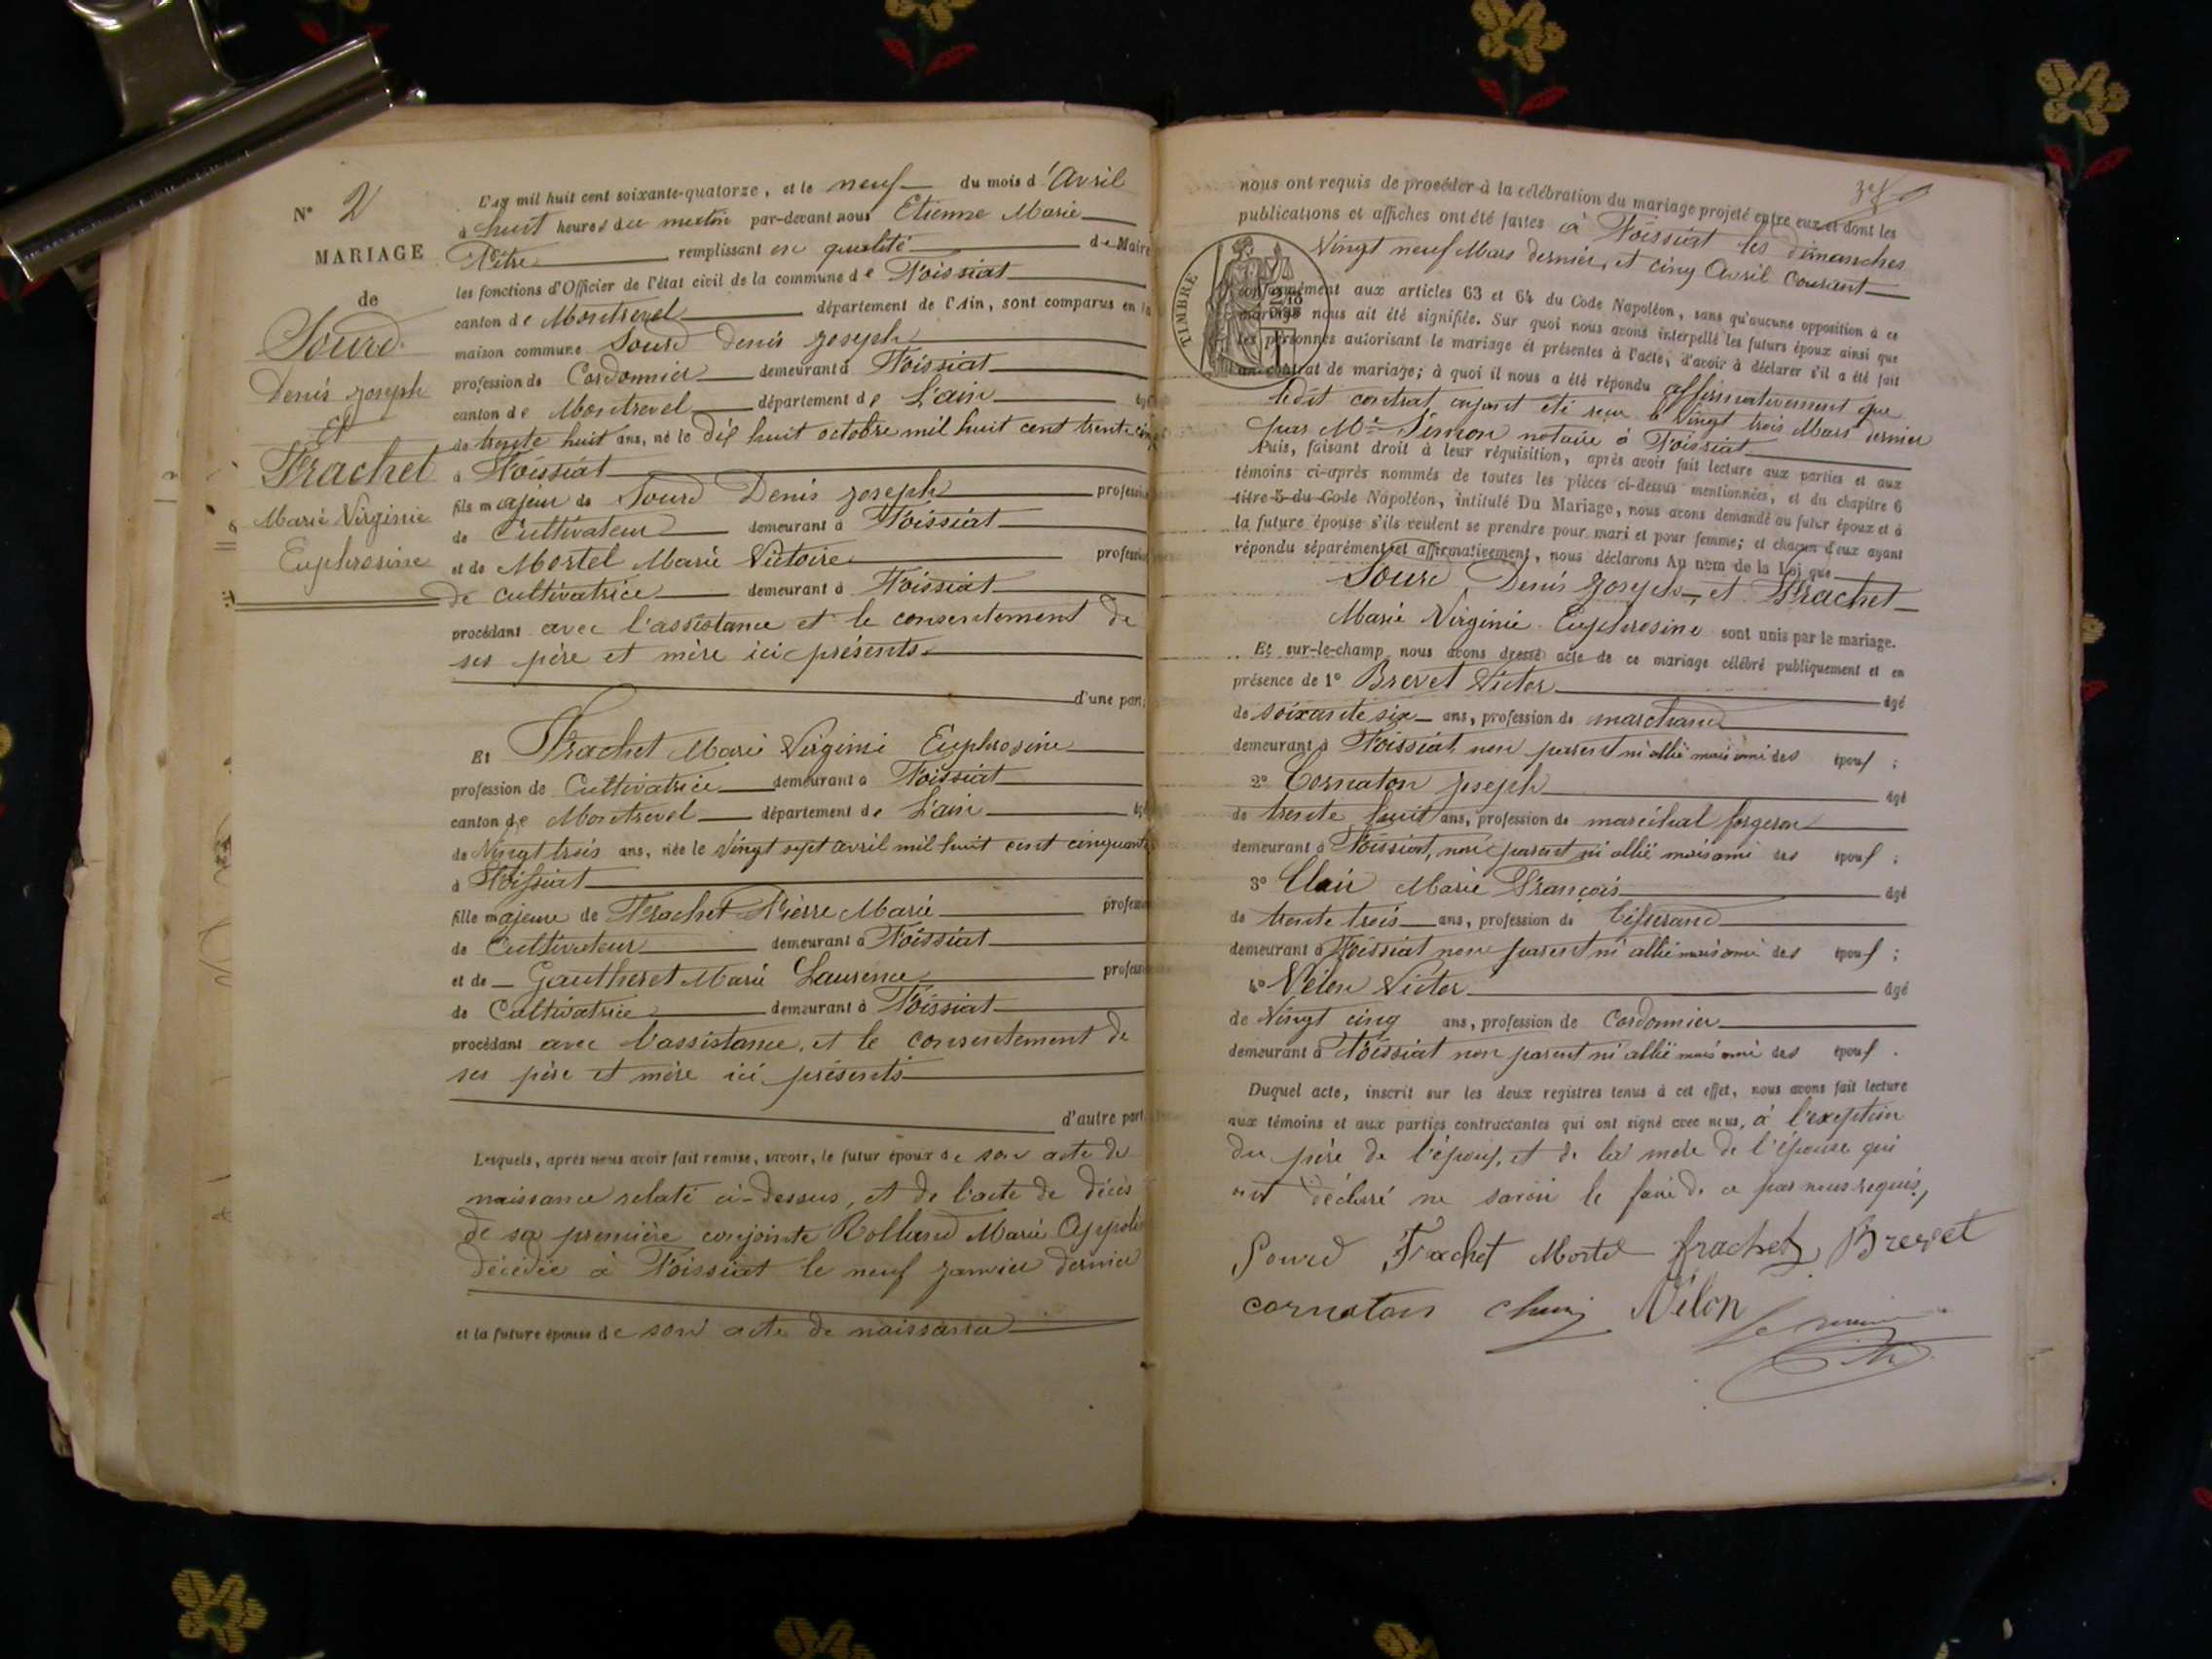 N° 2
MARIAGE
de
Sourd
Denis Joseph
Et
Frachet
Marie Virginie
Euphrosine
L'an mil huit cent soixante-quatorze, et le neuf du mois d'Avril
à huit heures du matin par-devant nous Etienne Marie
remplissant en qualité de Maire
les fonctions d'Officier de l'état civil de la commune de Foissiat
canton de Montrevel département de l'Ain, sont comparus en la
maison commune Sourd Denis Joseph
profession de Cordonnier demeurant à Foissiat
canton de Montrevel département de L'ain
de trente huit ans, né le dix huit octobre mil huit cent trente cinq
à Foissiat
fils majeur de Sourd Denis Joseph profession
de Cultivateur demeurant à Foissiat
et de Mortel Marie Victoire profession
de cultivatrice demeurant à Foissiat
procédant avec l'assistance et le consentement de
ses père et mère ici présents
d'une part;
Et Frachet Marie Virginie Euphrosine
profession de Cultivatrice demeurant à Foissiat
canton de Montrevel département de L'ain âgé
de Vingt trois ans, née le Vingt sept avril mil huit cent cinquante
à Foissiat
fille majeure de Frachet Pierre Marie profession
de Cultivateur demeurant à Foissiat
et de Gautheret Marie Laurence profession
de Cultivatrice demeurant à Foissiat
procédant avec l'assistance, et le consentement de
ses père et mère ici présents
d'autre part
Lesquels, après nous avoir fait remise, savoir, le futur époux de son acte de
naissance relaté ci-dessus, et de l'acte de décès
de sa première conjointe Rolland Marie Appoli
décédée à Foissiat le neuf janvier dernier
et la future épouse de son acte de naissance
nous ont requis de procéder à la célébration du mariage projeté entre eux et dont les
publications et affiches ont été faites à Foissiat les dimanches
Vingt neuf Mars dernier, et cinq Avril courant
TIMBRE
conformément aux articles 63 et 64 du Code Napoléon, sans qu'aucune opposition à ce
mariage nous ait été signifiée. Sur quoi nous avons interpellé les futurs époux ainsi que
les personnes autorisant le mariage et présentes à l'acte, d'avoir à déclarer s'il a été fait
un contrat de mariage; à quoi il nous a été répondu affirmativement que
ledit contrat ayant été reçu le Vingt trois Mars dernier
par Me Simon notaire à Foissiat
Puis, faisant droit à leur réquisition, après avoir fait lecture aux parties et aux
témoins ci-après nommés de toutes les pièces ci-dessus mentionnées, et du chapitre 6
titre 5 du Code Napoléon, intitulé Du Mariage, nous avons demandé au futur époux et à
la future épouse s'ils veulent se prendre pour mari et pour femme; et chacun d'eux ayant
répondu séparément et affirmativement, nous déclarons Au nom de la Loi que
Sourd Denis Joseph, et Frachet
Marie Virginie Euphrosine sont unis par le mariage.
Et sur-le-champ nous avons dressé acte de ce mariage célébré publiquement et en
présence de 1° Brevet Victor âgé
de soixante six ans, profession de marchand
demeurant à Foissiat non parent ni allié mais ami des époux ;
2° Cornaton Joseph âgé
de trente huit ans, profession de maréchal forgeron
demeurant à Foissiat, non parent ni allié mais ami des époux ;
3° Clair Marie François âgé
de trente trois ans, profession de tisserand
demeurant à Foissiat non parent ni allié mais ami des époux ;
4° Vélon Victor âgé
de Vingt cinq ans, profession de Cordonnier
demeurant à Foissiat non parent ni allié mais ami des époux .
Duquel acte, inscrit sur les deux registres tenus à cet effet, nous avons fait lecture
aux témoins et aux parties contractantes qui ont signé avec nous, à l'exeption
du père de l'époux, et de la mère de l'épouse qui
ont déclaré ne savoir le faire de ce par nous requis,
Sourd Frachet Mortel frachet Brevet
cornaton Vélon